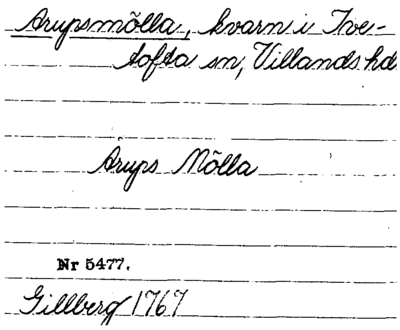 Arupsmölla, kvarn i Tve-
tofta sn, Villands hd.
Arups Mölla
Nr 5477.
Gillberg 1767